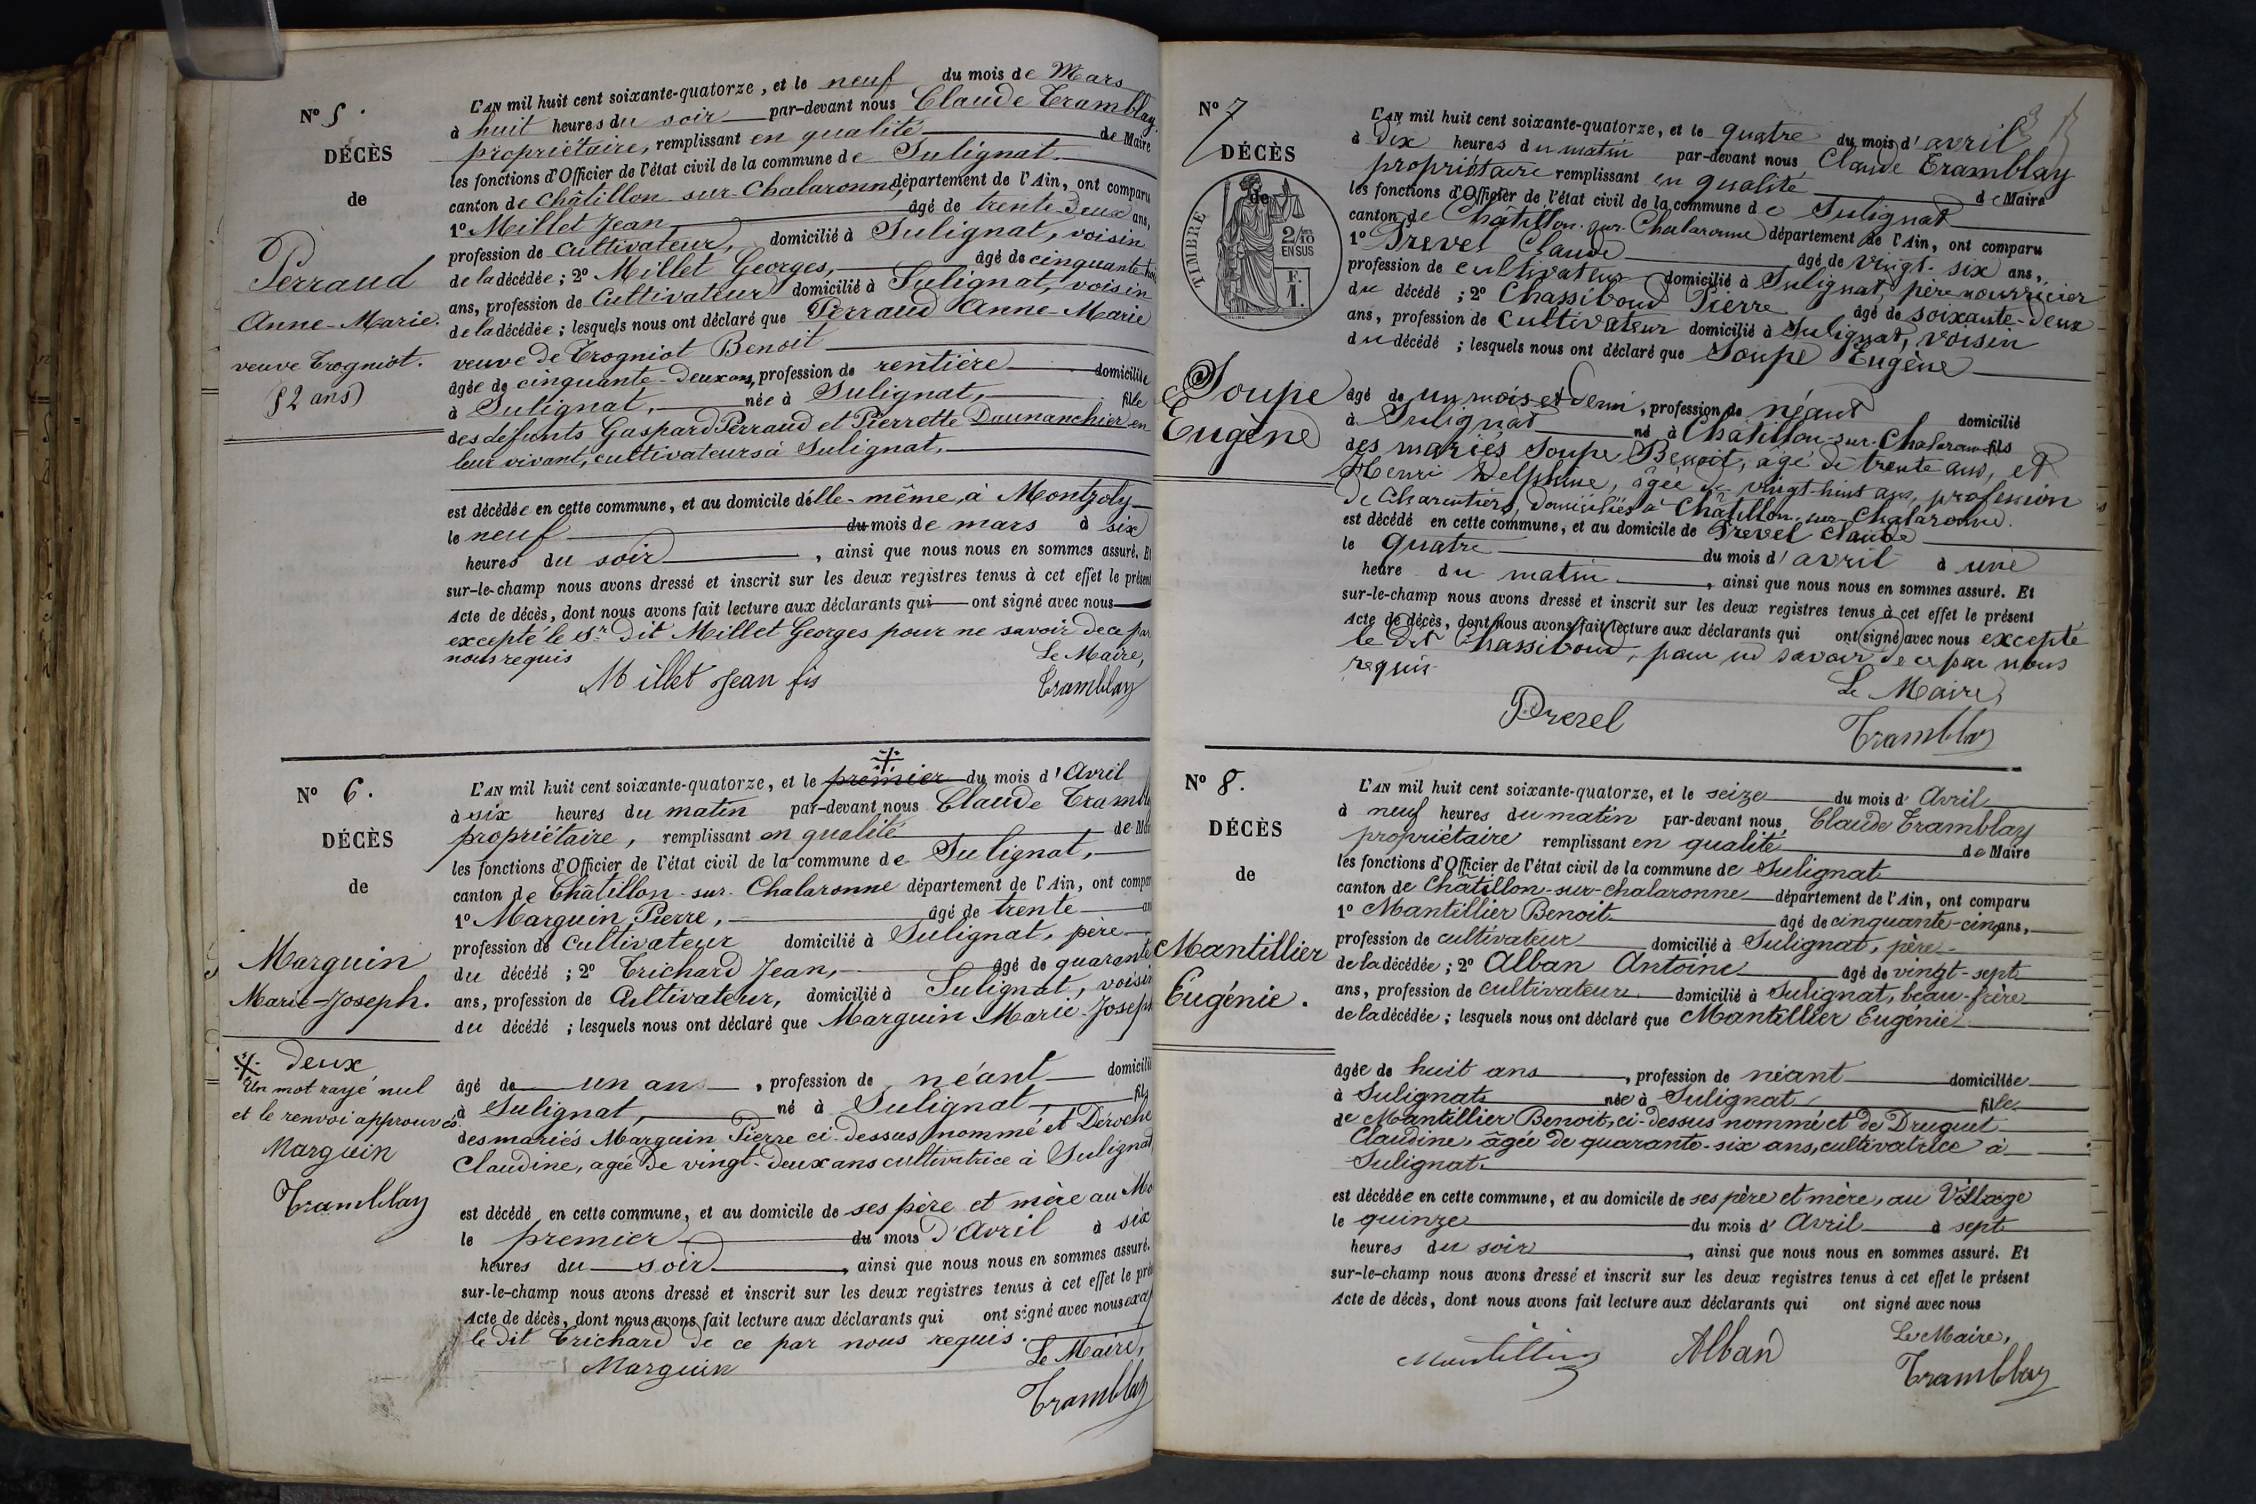 Nº 5.
DÉCÈS
de
Perraud
Anne-Marie.
veuve Trogniot.
52 ans
L'AN mil huit cent soixante-quatorze, et le neuf du mois de Mars
à huit heures du soir par-devant nous Claude Tramblay
propriétaire, remplissant en qualité de Maire
les fonctions d'Officier de l'état civil de la commune de Sulignat.
canton de Châtillon-sur-Chalaronne, département de l'Ain, ont comparu
1º Millet Jean âgé de trente-deux ans,
profession de Cultivateur, domicilié à Sulignat, voisin
de la décédée; 2º Millet Georges, âgé de cinquante
ans, profession de Cultivateur domicilié à Sulignat, voisin
de la décédée; lesquels nous ont déclaré que Perraud Anne-Marie
veuve de Trogniot Benoit
âgée de cinquante-deux ans, profession de rentière domiciliée
à Sulignat, née à Sulignat, fille
des défunts Gaspard Perraud et Pierrette Daunanchier en
leur vivant, cultivateurs à Sulignat.
est décédée en cette commune, et au domicile d'élle-même, à Montzoly
le neuf du mois de mars à six
heures du soir, ainsi que nous nous en sommes assuré. Et
sur-le-champ nous avons dressé et inscrit sur les deux registres tenus à cet effet le présent
Acte de décès, dont nous avons fait lecture aux déclarants qui ont signé avec nous
excepté le Sr dit Millet Georges pour ne savoir de ce par
nous requis
Le Maire,
Millet Jean fis
Tramblay
Nº 6.
DÉCÈS
de
Marguin
Marie-Joseph.
deux
Un mot rayé nul
et le renvoi approuvés
Marguin
Tramblay
L'AN mil huit cent soixante-quatorze, et le premier du mois d'Avril
à six heures du matin par-devant nous Claude Trambl
propriétaire, remplissant en qualité de Mai
les fonctions d'Officier de l'état civil de la commune de Sulignat,
canton de Châtillon-sur-Chalaronne département de l'Ain, ont compar
1º Marguin Pierre, âgé de trente an
profession de Cultivateur domicilié à Sulignat, père
du décédé; 2º Trichard Jean, âgé de quarante
ans, profession de Cultivateur, domicilié à Sulignat, voisin
du décédé; lesquels nous ont déclaré que Marguin Marie-Joseph
âgé de un an, profession de néant domicilié
à Sulignat, né à Sulignat, fils
des mariés Marguin Pierre ci-dessus nommé et Déroche
Claudine, agée de vingt-deux ans cultivatrice à Sulignat,
est décédé en cette commune, et au domicile de ses père et mère au Mo
le premier du mois d'Avril à six
heures du soir, ainsi que nous nous en sommes assuré.
sur-le-champ nous avons dressé et inscrit sur les deux registres tenus à cet effet le prés
Acte de décès, dont nous avons fait lecture aux déclarants qui ont signé avec nous
le dit Trichard de ce par nous requis.
Le Maire,
Marguin
Tramblay
Nº 7
DÉCÈS
de
TIMBRE
2/10
EN SUS
F.
1.
Soupe
Eugène
L'AN mil huit cent soixante-quatorze, et le quatre du mois d'avril
à Dix heures du matin par-devant nous Claude Tramblay
propriétaire remplissant en qualité de Maire
les fonctions d'Officier de l'état civil de la commune de Sulignat
canton de Châtillon-sur-Chalaronne département de l'Ain, ont comparu
1º Prevel Claude âgé de vingt-six ans,
profession de cultivateur domicilié à Sulignat, père nourricier
du décédé; 2º Chassiboud Pierre âgé de soixante-deux
ans, profession de Cultivateur domicilié à Sulignat, voisin
du décédé; lesquels nous ont déclaré que Soupe Eugène
âgé de un mois et demi, profession de néant domicilié
à Sulignat né à Châtillon-sur-Chalaronne fils
des mariés Soupe Benoit, âgé de trente ans, et
Henri Delphine, âgée de vingt-huit ans, profession
de Charentiers, domiciliés à Châtillon-sur-Chalaronne.
est décédé en cette commune, et au domicile de Prevel Claude
le quatre du mois d'avril à une
heure du matin, ainsi que nous nous en sommes assuré. Et
sur-le-champ nous avons dressé et inscrit sur les deux registres tenus à cet effet le présent
Acte de décès, dont nous avons fait lecture aux déclarants qui ont signé avec nous excepté
le dit Chassiboud, pour ne savoir de ce par nous
requis
Le Maire,
Prevel
Tramblay
Nº 8.
DÉCÈS
de
Mantillier
Eugénie.
L'AN mil huit cent soixante-quatorze, et le seize du mois d'Avril
à neuf heures du matin par-devant nous, Claude Tramblay
propriétaire remplissant en qualité de Maire
les fonctions d'Officier de l'état civil de la commune de Sulignat
canton de Châtillon-sur-chalaronne département de l'Ain, ont comparu
1º Mantillier Benoit âgé de cinquante-cinq ans,
profession de cultivateur domicilié à Sulignat, père
de la décédée; 2º Alban Antoine âgé de vingt-sept
ans, profession de cultivateur domicilié à Sulignat, beau-frère
de la décédée; lesquels nous ont déclaré que Mantillier Eugénie
âgée de huit ans, profession de néant domiciliée
à Sulignat née à Sulignat fille
de Mantillier Benoit, ci-dessus nommé et de Druguet
Claudine, âgée de quarante-six ans, cultivatrice à
Sulignat.
est décédée en cette commune, et au domicile de ses père et mère, au Village
le quinze du mois d'Avril à sept
heures du soir, ainsi que nous nous en sommes assuré. Et
sur-le-champ nous avons dressé et inscrit sur les deux registres tenus à cet effet le présent
Acte de décès, dont nous avons fait lecture aux déclarants qui ont signé avec nous
Le Maire,
Mantillier Alban Tramblay